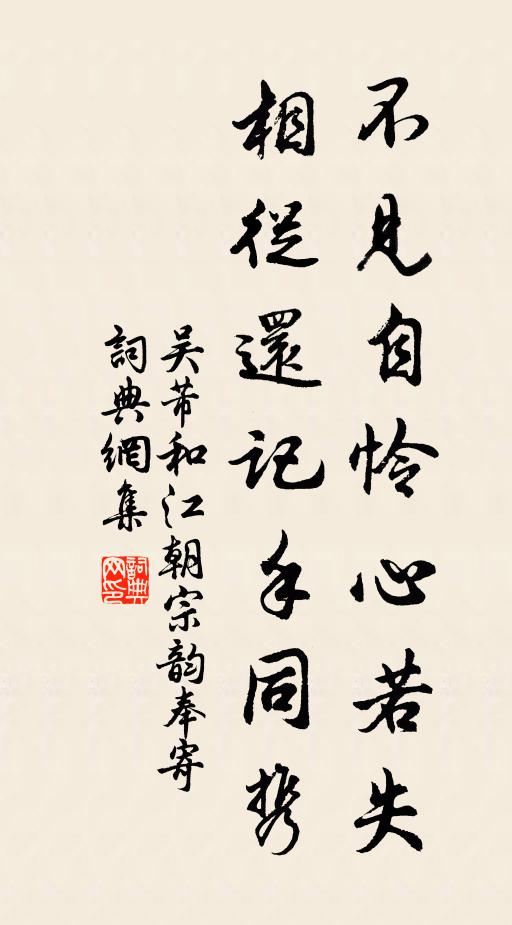 不見自怜心若失
相從還記手同携
吴芾和江朝宗韵奉寄
詞典網集
詞典网印